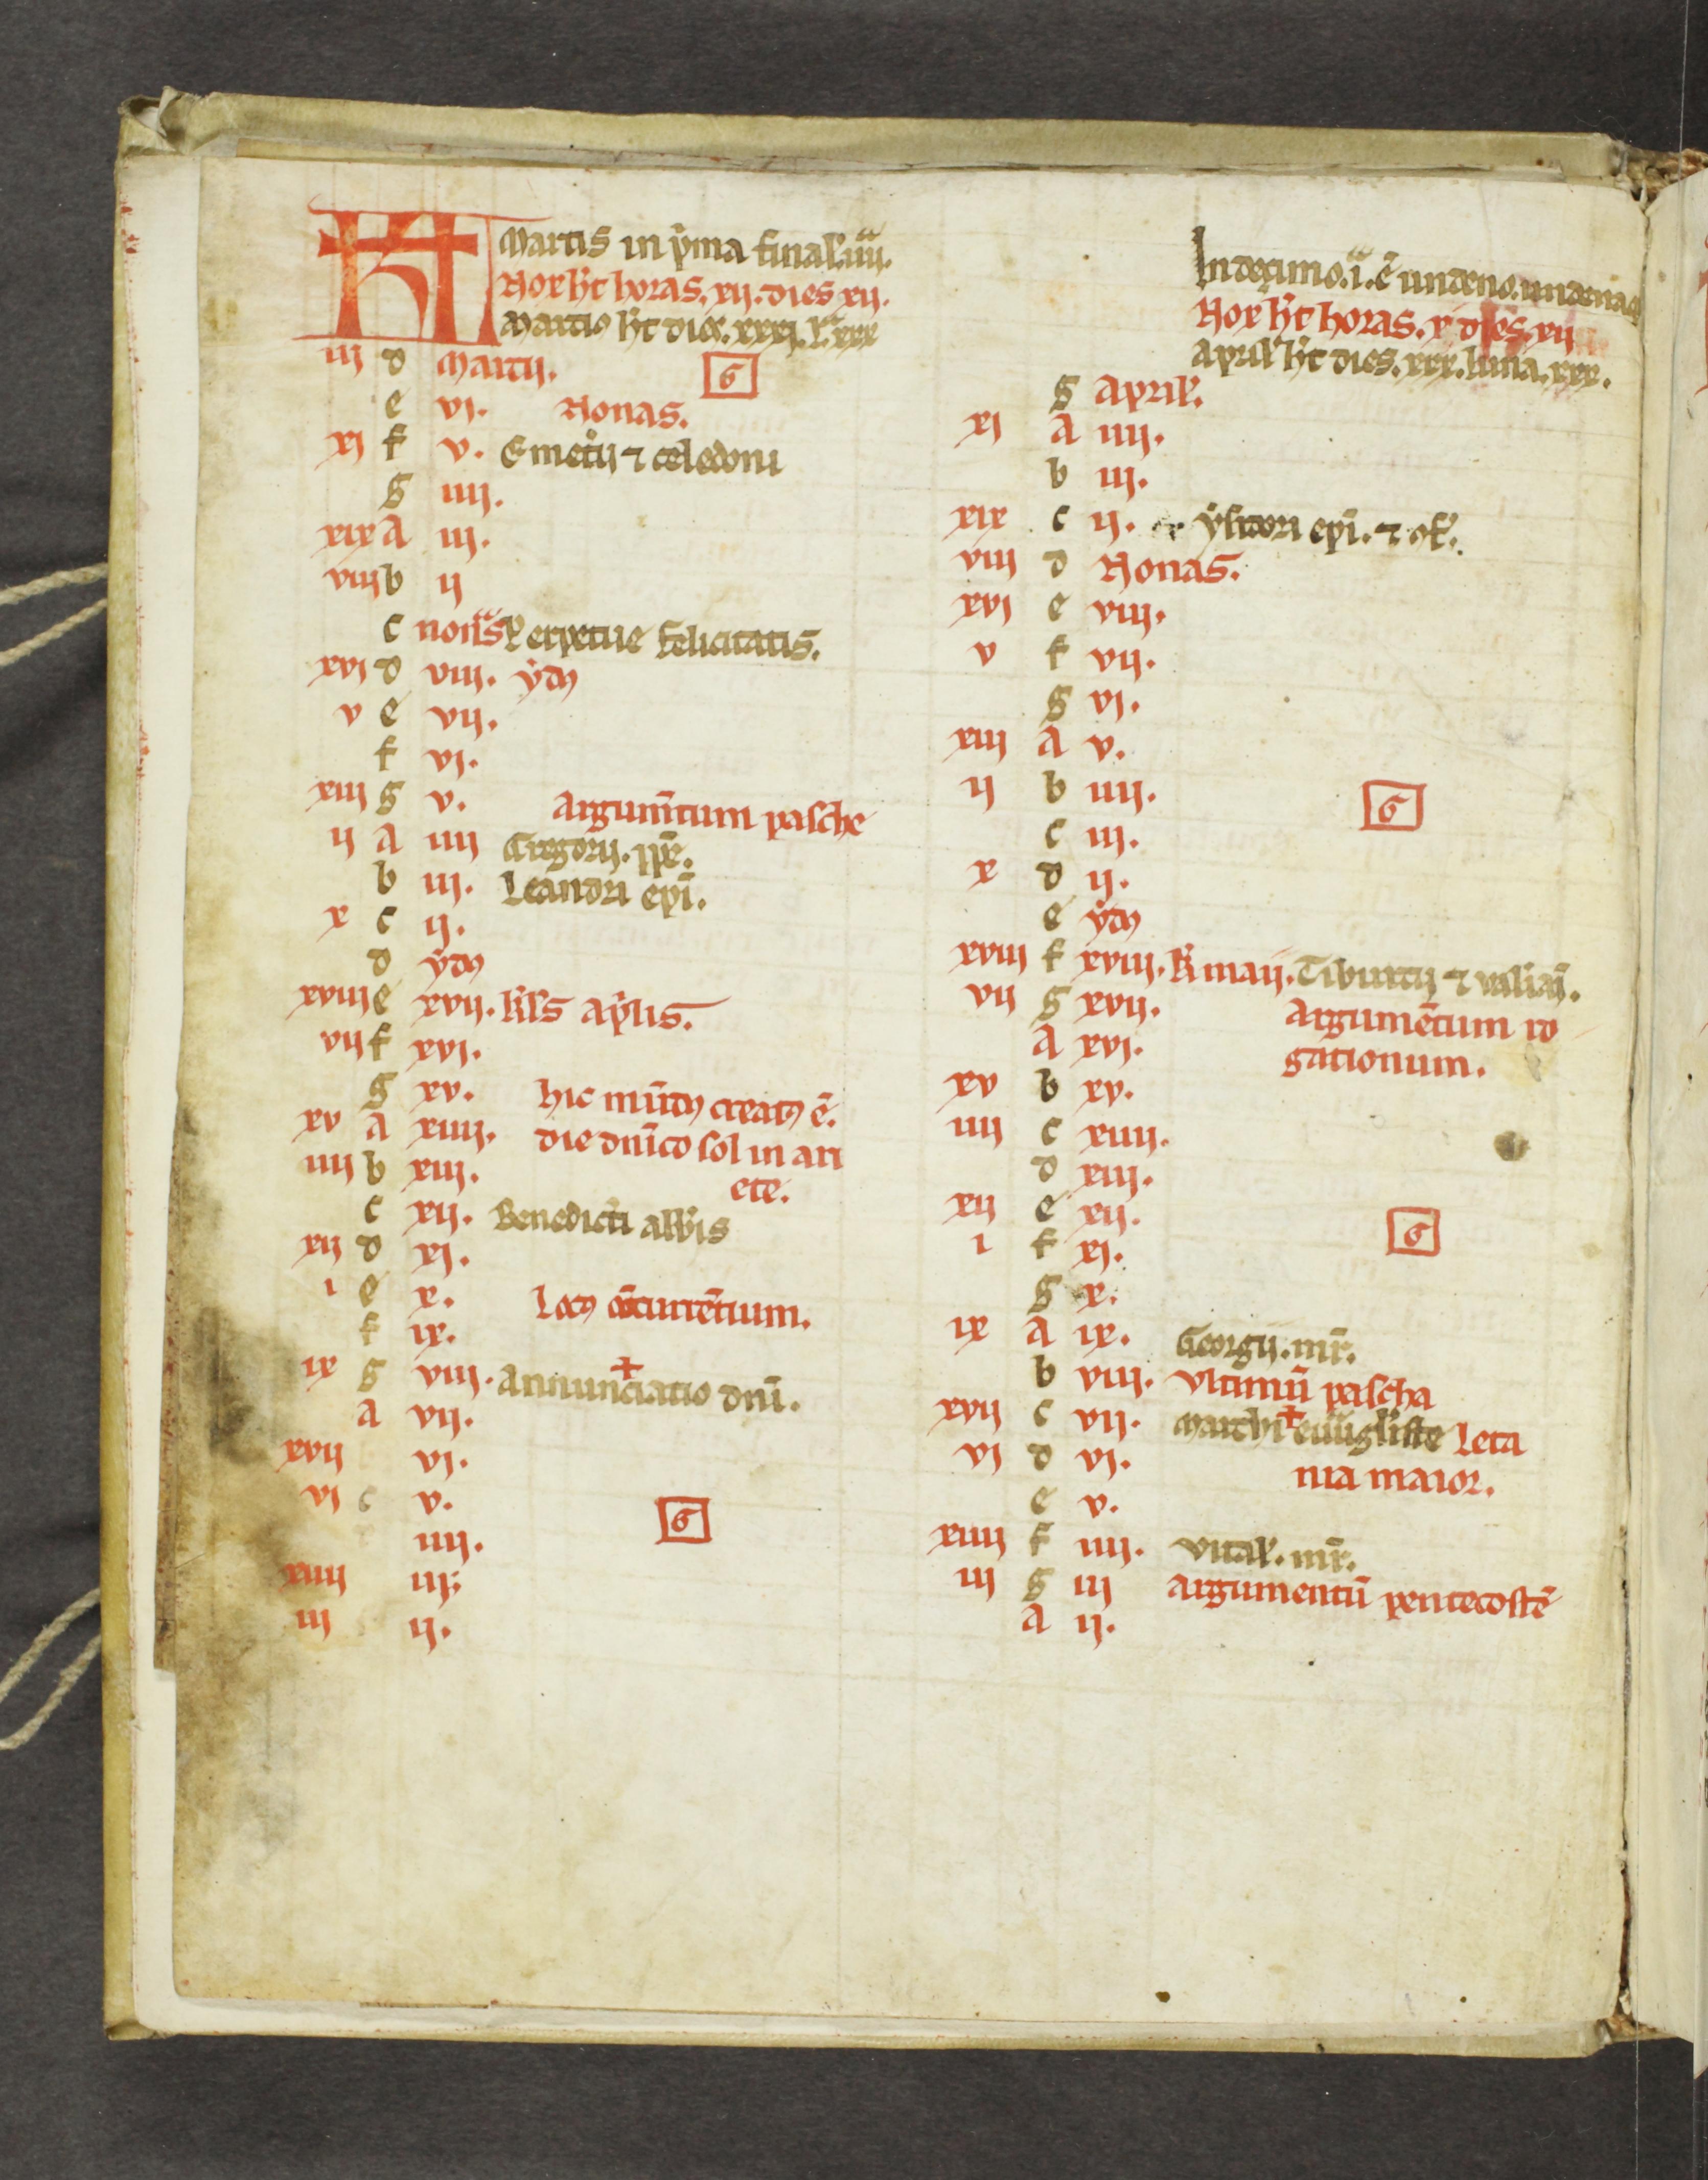 KL Martis in p'ma final'. iiii.
Nox h't horas. xii. dies xii.
Martiꝰ h't dies. xxxi. l'. xxx
iii d Martii. 6
e vi. Nonas.
xi f v. Emet'ii ⁊ celedoni
g iiii.
xix A iii.
viii b ii
c nonas Perpetue felicitatis.
xvi d viii. ẏdꝰ
v e vii.
f vi.
xiii g v. Argum̄tum pasche
ii A iiii Gregorii. pp̄.
b iii. Leandri ep̄i.
x c ii.
d ẏdꝰ
xviii e xvii. kl's ap'lis.
vii f xvi.
g xv. hic mūdꝰ creatꝰ ē.
xv A xiiii. die dn̄ico sol in ari
iiii b xiii. ete.
c xii. Benedicti abb'is
xii d xi.
i e x. Locꝰ ꝯcurrētium.
f ix.
ix g viii. Annunciatio dn̄i.
A vii.
xvii vi.
vi c v.
iiii. 6
xiiii iii.
iii ii.
In decimo. i. ē undeno.
Nox h't horas. x dies. xii
April' h't dies. xxx. luna. xxx.
g April'.
xi A iiii.
b iii.
xix c ii. ẏsidori ep̄i. ⁊ ꝯf'.
viii d Nonas.
xvi e viii.
v f vii.
g vi.
xiii A v.
ii b iiii. 6
c iii.
x d ii.
e ẏdꝰ
xviii f xviii. kl' maii. Tiburtii ⁊ val'iai̅.
vii g xvii. Argumētum ro
A xvi. gationum.
xv b xv.
iiii c xiiii.
d xiii.
xii e xii. 6
i f xi.
g x.
ix A ix. Georgii. mr̄.
b viii. Vltimū pascha
xvii c vii. Marchi euuāgl'iste Leta
vi d vi. nia maior.
e v.
xiiii f iiii. Vital'. mr̄.
iii g iii Argumentū pentecostē
A ii.